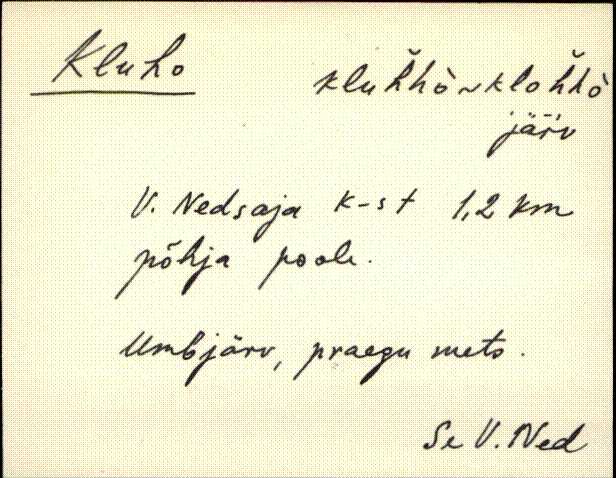 Kluho
kluȟhò ~ kloȟhò
järv
V. Nedsaja k-st 1,2 km
põhja poole.
Umbjärv, praegu mets.
Se V. Ned